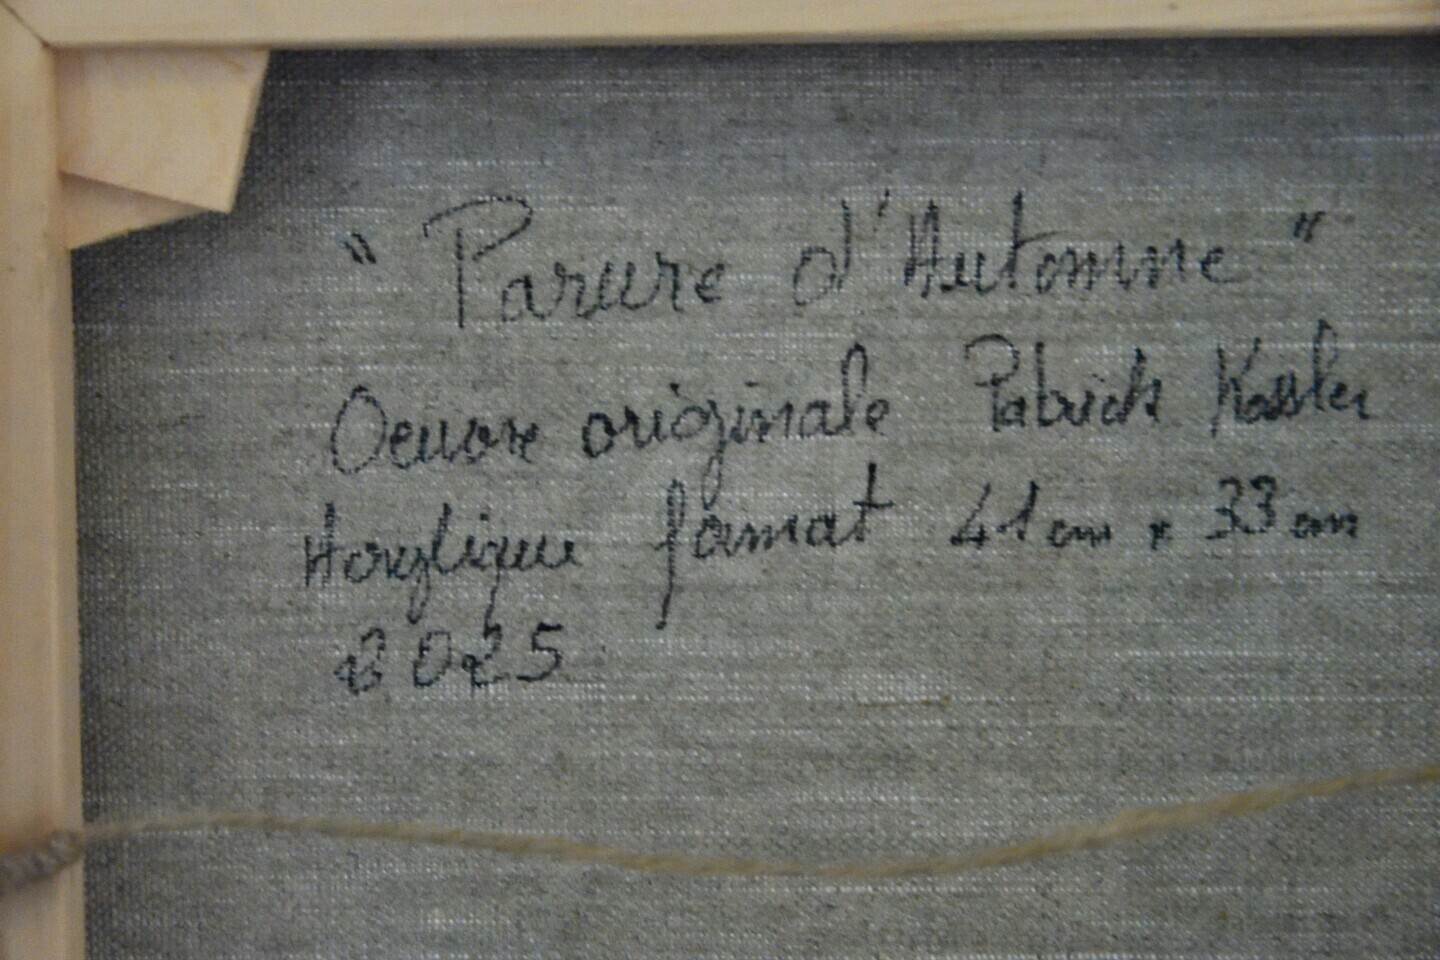 " Parure d'Automne "
Oeuvre originale Patrick Kessler
Acrylique format 41 cm x 33 cm
2025